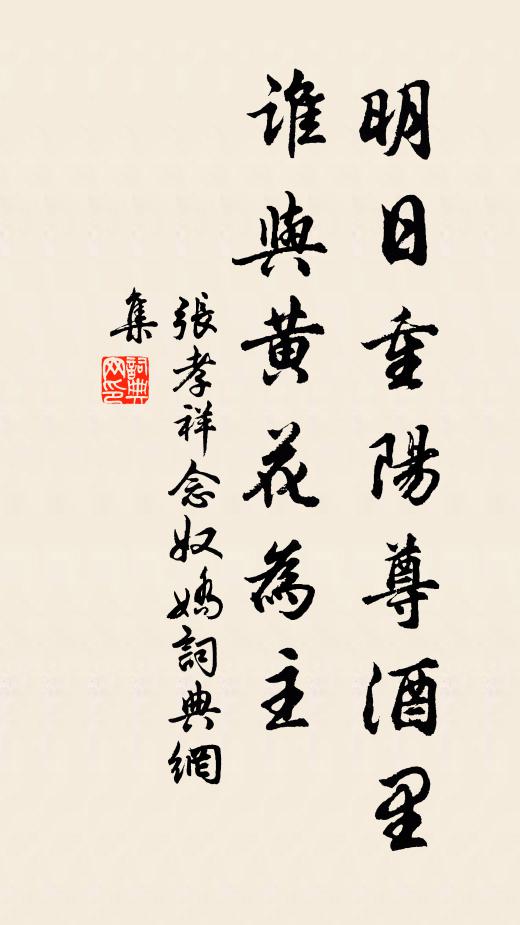 明日重陽尊酒里
誰與黃花為主
張孝祥念奴嬌詞典網
集
詞典
网印